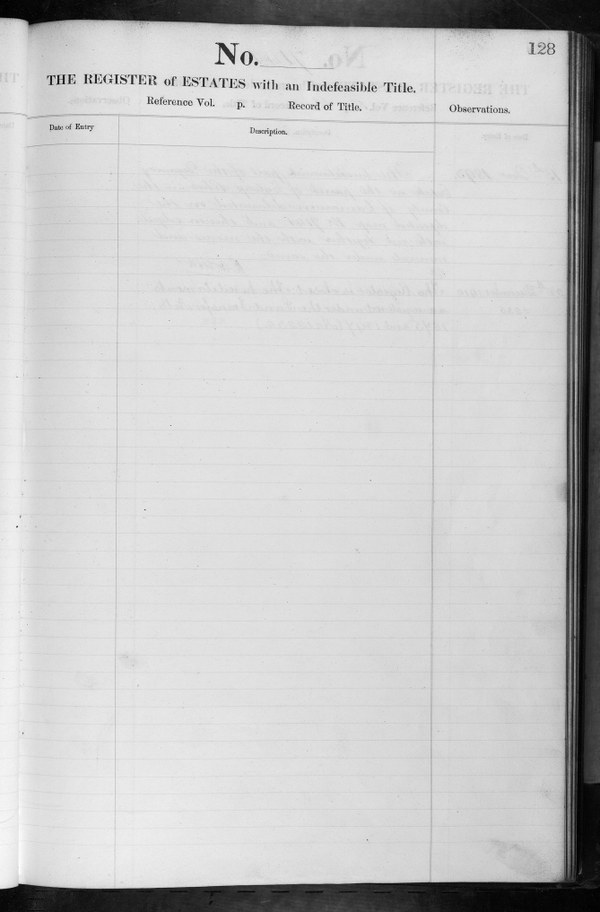 128
No.
THE REGISTER of ESTATES with an Indefeasible Title.
Reference Vol. p. Record of Title.
Observations.
Date of Entry
Description.